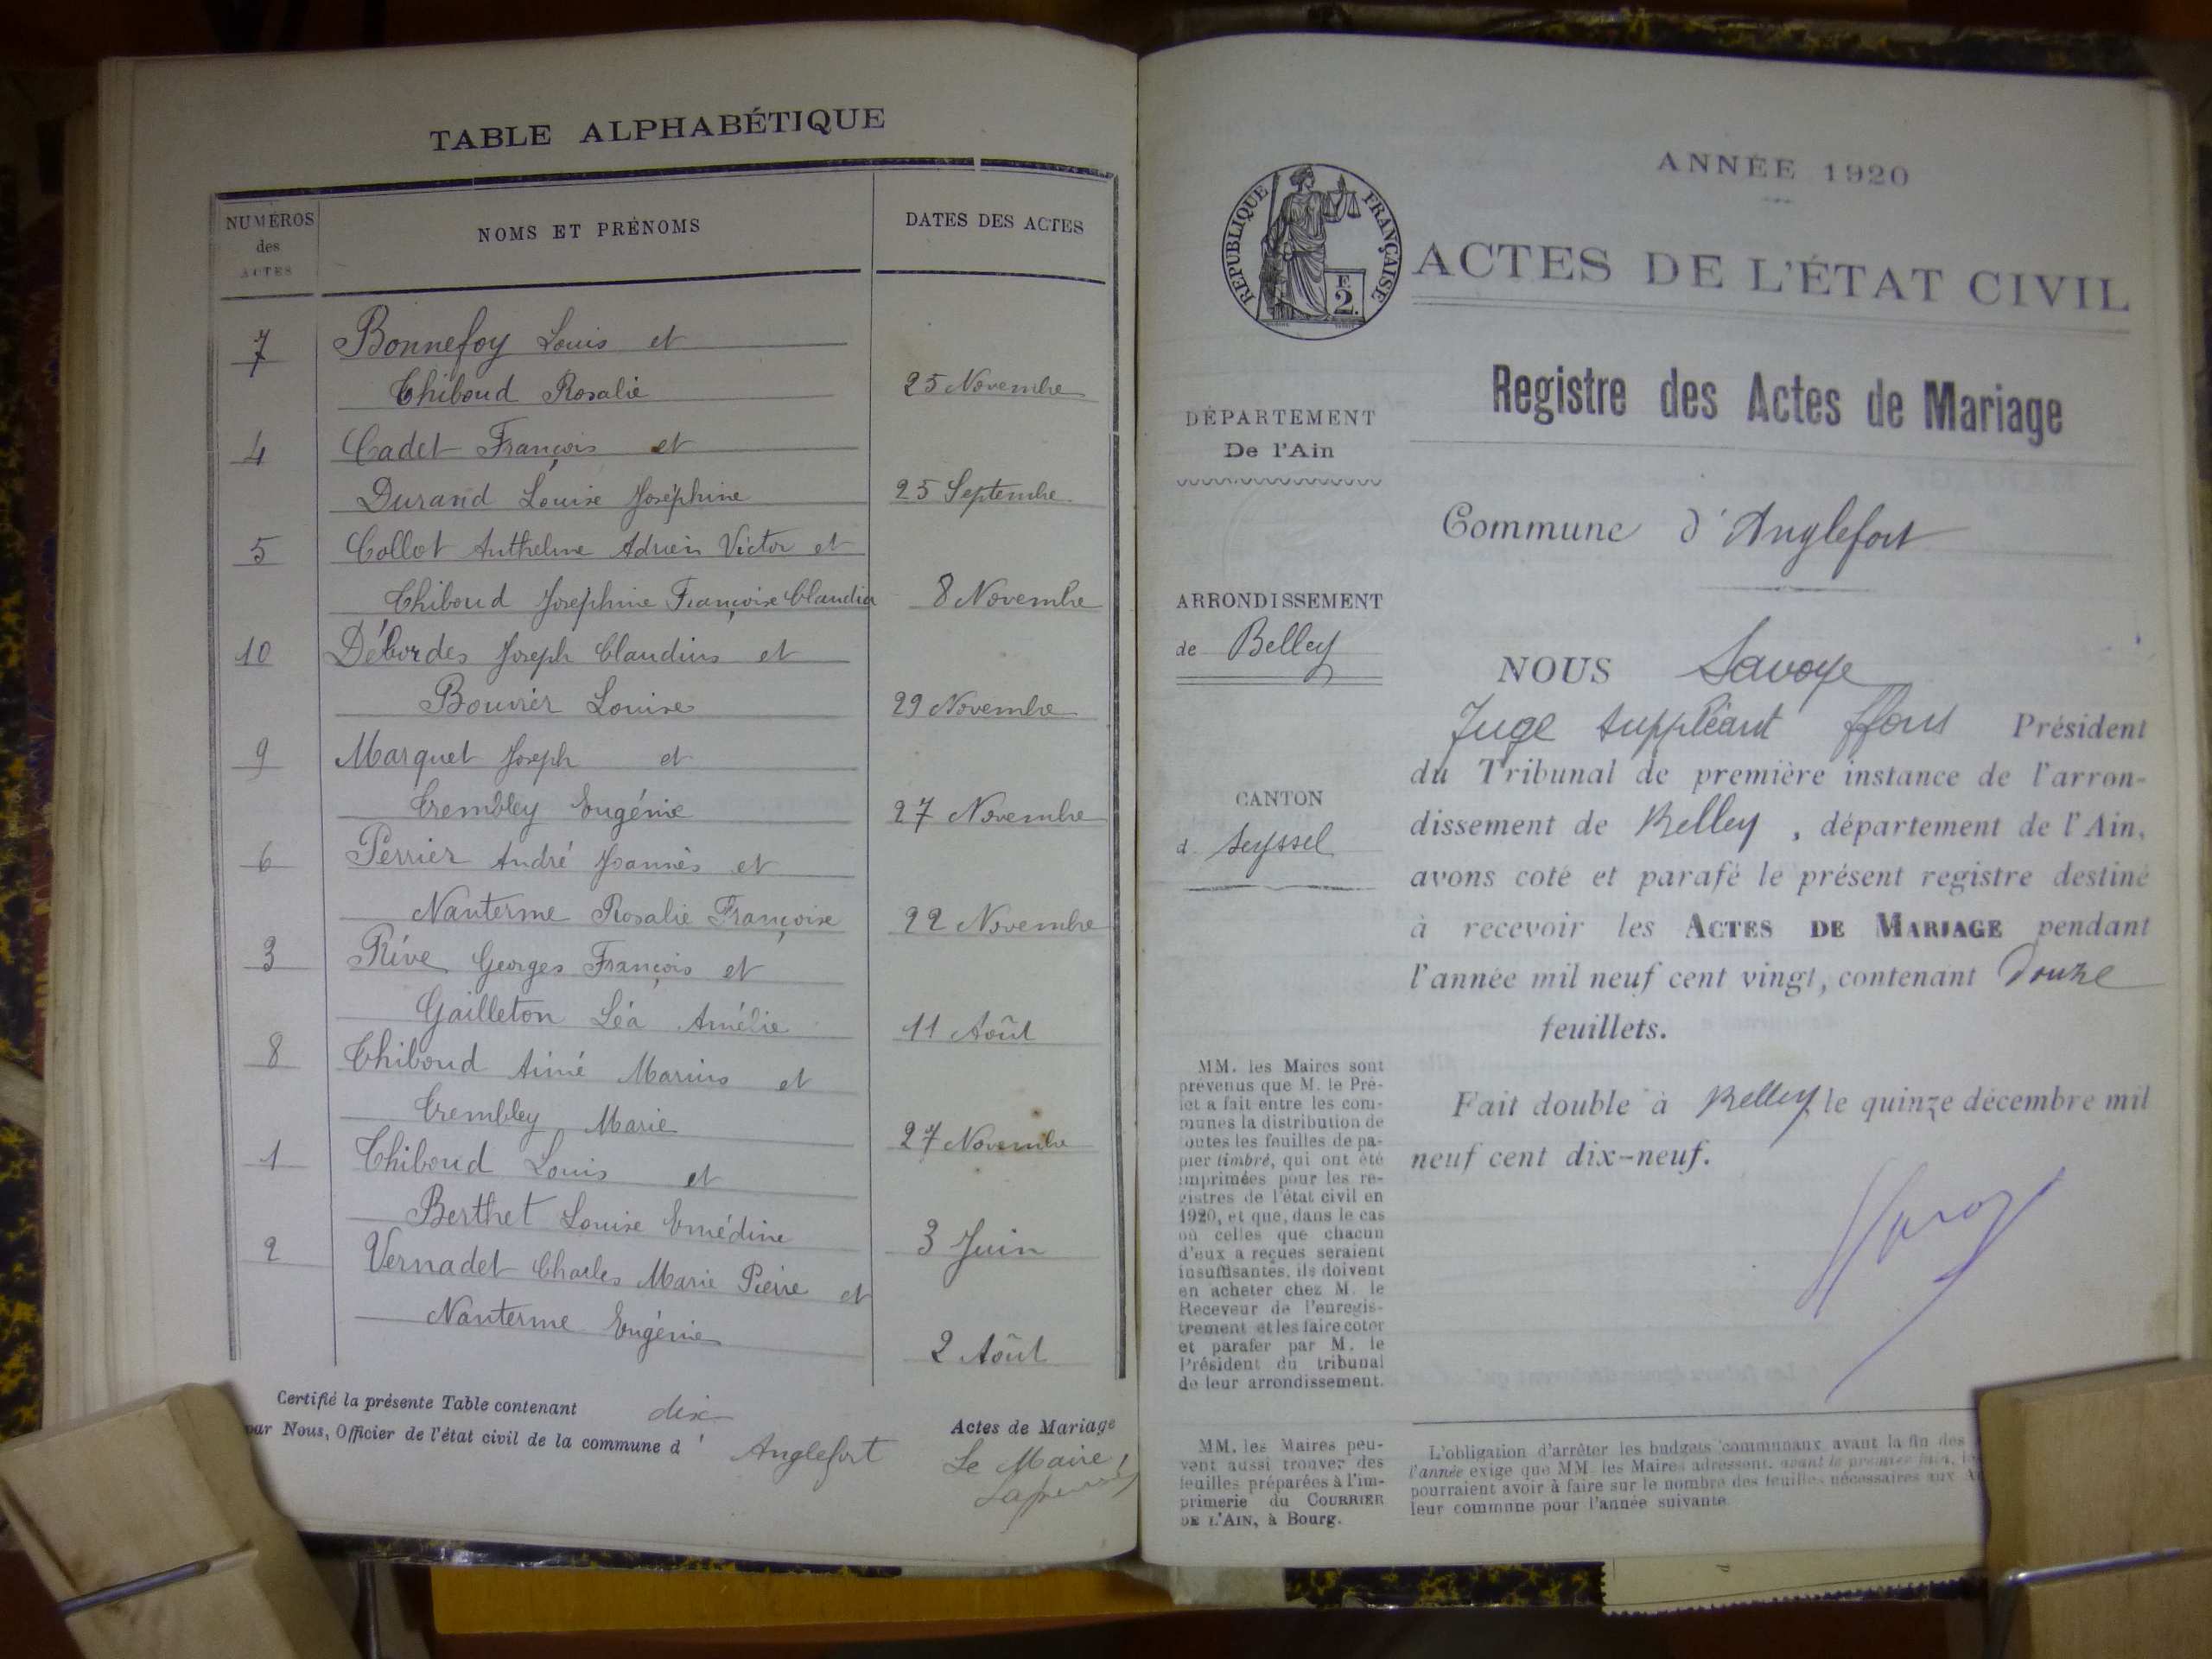 TABLE ALPHABÉTIQUE
NUMÉROS
des
ACTES
NOMS ET PRÉNOMS
DATES DES ACTES
7 Bonnefoy Louis et
Thiboud Rosalie 25 Novembre
4 Cadet François et
Durand Louise Joséphine 25 Septembre
5 Collot Anthelme Adrien Victor et
Thiboud Joséphine Françoise Claudia 8 Novembre
10 Débordes Joseph Claudius et
Bouvier Louise 29 Novembre
9 Marquet Joseph et
Trembley Eugénie 27 Novembre
6 Perrier André Joannès et
Nanterme Rosalie Françoise 22 Novembre
3 Rive Georges François et
Gailleton Léa Amélie 11 Août
8 Thiboud Aimé Marius et
Trembley Marie 27 Novembre
1 Thiboud Louis et
Berthet Louise Emédine 3 Juin
2 Vernadet Charles Marie Pierre et
Nanterme Eugénie 2 Août
Certifié la présente Table contenant dix Actes de Mariage
par Nous, Officier de l'état civil de la commune d' Anglefort
Le Maire,
ANNÉE 1920
RÉPUBLIQUE FRANÇAISE
F.
2.
ACTES DE L'ÉTAT CIVIL
Registre des Actes de Mariage
DÉPARTEMENT
De l'Ain
Commune d'Anglefort
ARRONDISSEMENT
de Belley
CANTON
d. Seyssel
NOUS Savoye
Juge suppléant ffons Président
du Tribunal de première instance de l'arron-
dissement de Belley, département de l'Ain,
avons coté et parafé le présent registre destiné
à recevoir les ACTES DE MARIAGE pendant
l'année mil neuf cent vingt, contenant Douze
feuillets.
Fait double à Belley, le quinze décembre mil
neuf cent dix-neuf.
MM. les Maires sont
prévenus que M. le Pré-
fet a fait entre les com-
munes la distribution de
toutes les feuilles de pa-
pier timbré, qui ont été
imprimées pour les re-
gistres de l'état civil en
1920, et que, dans le cas
où celles que chacun
d'eux a reçues seraient
insuffisantes, ils doivent
en acheter chez M. le
Receveur de l'enregis-
trement et les faire coter
et parafer par M. le
Président du tribunal
de leur arrondissement.
MM. les Maires peu-
vent aussi trouver des
feuilles préparées à l'im-
primerie du COURRIER
DE L'AIN, à Bourg.
L'obligation d'arrêter les budgets communaux avant la fin des
l'année exige que MM. les Maires adressent, avant le premier juin,
pourraient avoir à faire sur le nombre des feuilles nécessaires aux
leur commune pour l'année suivante.